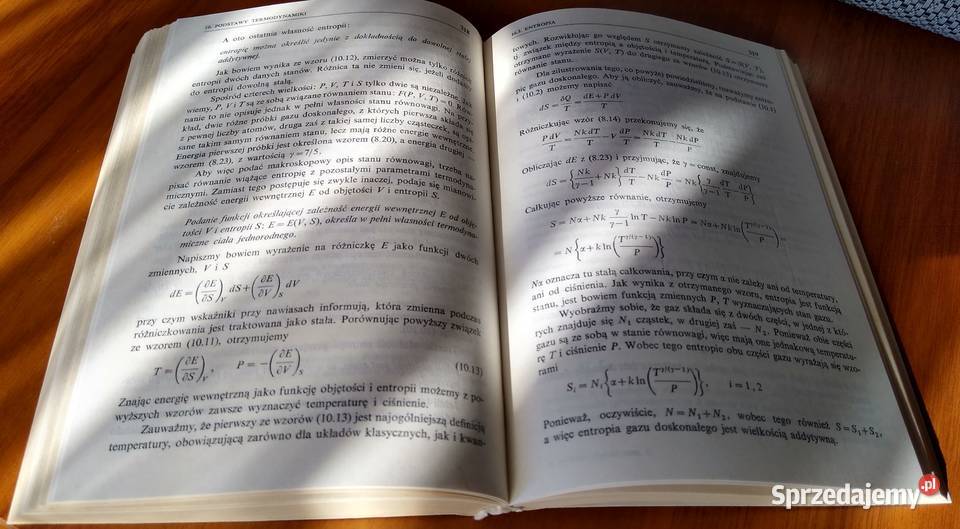 10. PODSTAWY TERMODYNAMIKI
318
A oto ostatnia własność entropii:
entropię można określić jedynie z dokładnością do dowolnej stałej
addytywnej.
Jak bowiem wynika ze wzoru (10.12), zmierzyć można tylko różnicę
entropii dwóch danych stanów. Różnica ta nie zmieni się, jeżeli dodamy
do entropii dowolną stałą.
Spośród czterech wielkości: P, V, T i S tylko dwie są niezależne. Jak
wiemy, P, V i T są ze sobą związane równaniem stanu: F(P, V, T) = 0. Rów-
nanie to nie opisuje jednak w pełni własności stanu równowagi. Na przy-
kład, dwie różne próbki gazu doskonałego, z których pierwsza składa się
z pewnej liczby atomów, druga zaś z takiej samej liczby cząsteczek, są opi-
sane takim samym równaniem stanu, lecz mają różne energie wewnętrzne.
Energia pierwszej próbki jest określona wzorem (8.20), a energia drugiej —
wzorem (8.23), z wartością γ = 7/5.
Aby więc podać makroskopowy opis stanu równowagi, trzeba na-
pisać równanie wiążące entropię z pozostałymi parametrami termodyna-
micznymi. Zamiast tego postępuje się zwykle inaczej, podaje się mianowi-
cie zależność energii wewnętrznej E od objętości V i entropii S.
Podanie funkcji określającej zależność energii wewnętrznej E od obję-
tości V i entropii S: E = E(V, S), określa w pełni własności termodyna-
miczne ciała jednorodnego.
Napiszmy bowiem wyrażenie na różniczkę E jako funkcji dwóch
zmiennych, V i S
dE = (∂E/∂S)_V dS + (∂E/∂V)_S dV
przy czym wskaźniki przy nawiasach informują, która zmienna podczas
różniczkowania jest traktowana jako stała. Porównując powyższy związek
ze wzorem (10.11), otrzymujemy
T = (∂E/∂S)_V, P = −(∂E/∂V)_S (10.13)
Znając energię wewnętrzną jako funkcję objętości i entropii możemy z po-
wyższych wzorów zawsze wyznaczyć temperaturę i ciśnienie.
Zauważmy, że pierwszy ze wzorów (10.13) jest najogólniejszą definicją
temperatury, obowiązującą zarówno dla układów klasycznych, jak i kwan-
10.3. ENTROPIA
319
towych. Rozwikłując go względem S otrzymamy zależność S = S(T, V),
tj. związek między entropią a objętością i temperaturą. Podstawiając zaś
otrzymane wyrażenie S(V, T) do drugiego ze wzorów (10.13) otrzymamy
równanie stanu.
Dla zilustrowania tego, co powyżej powiedzieliśmy, rozważymy entro-
pię gazu doskonałego. Aby ją obliczyć, zauważmy, że na podstawie (10.1)
i (10.2) możemy napisać
dS = δQ/T = (dE + P dV)/T
Różniczkując wzór (8.14) przekonujemy się, że
P dV/T = Nk dT/T − V dP/T = Nk dT/T − Nk dP/P
Obliczając dE z (8.23) i przyjmując, że γ = const, znajdujemy
dS = {Nk/(γ−1) + Nk} dT/T − Nk dP/P = Nk{γ/(γ−1) dT/T − dP/P}
Całkując powyższe równanie, otrzymujemy
S = Nα + Nk γ/(γ−1) ln T − Nk ln P = Nα + Nk ln(T^{γ/(γ−1)}/P) =
= N{α + k ln(T^{γ/(γ−1)}/P)}
Nα oznacza tu stałą całkowania, przy czym α nie zależy ani od temperatury,
ani od ciśnienia. Jak wynika z otrzymanego wzoru, entropia jest funkcją
stanu, jest bowiem funkcją zmiennych P, T wyznaczających stan gazu.
Wyobraźmy sobie, że gaz składa się z dwóch części, w jednej z któ-
rych znajduje się N₁ cząstek, w drugiej zaś — N₂. Ponieważ obie części
gazu są ze sobą w stanie równowagi, więc mają one jednakową temperatu-
rę T i ciśnienie P. Wobec tego entropie obu części gazu wyrażają się wzo-
rami
Sᵢ = Nᵢ{α + k ln(T^{γ/(γ−1)}/P)}, i = 1, 2
Ponieważ, oczywiście, N = N₁ + N₂, wobec tego również S = S₁ + S₂,
a więc entropia gazu doskonałego jest wielkością addytywną.
Sprzedajemy.pl